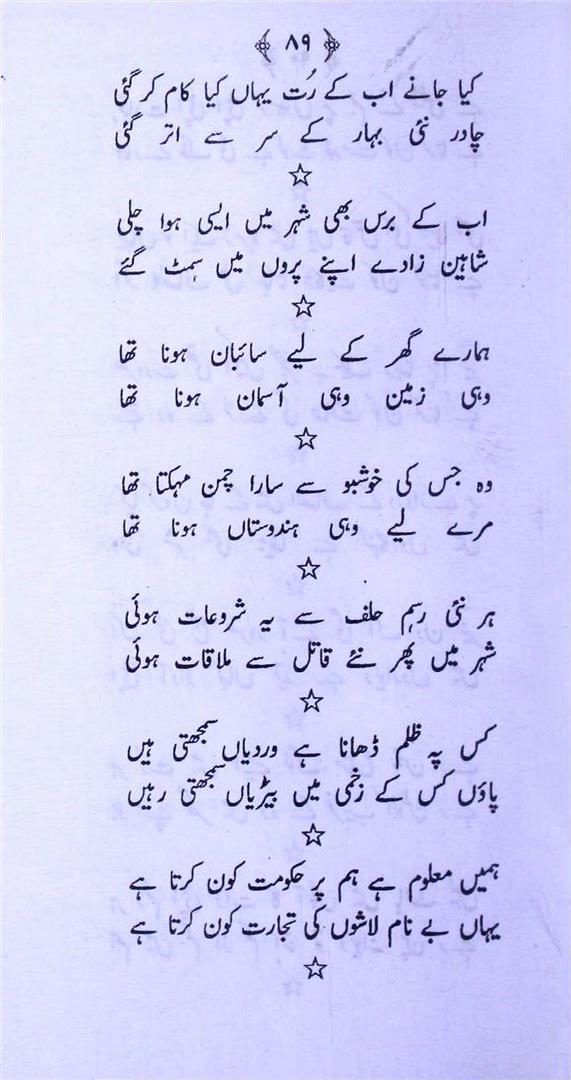 ﴾ ۸۹ ﴿
کیا جانے اب کے رُت یہاں کیا کام کر گئی
چادر نئی بہار کے سر سے اتر گئی
☆
اب کے برس بھی شہر میں ایسی ہوا چلی
شاہین زادے اپنے پروں میں سمٹ گئے
☆
ہمارے گھر کے لیے سائبان ہونا تھا
وہی زمین وہی آسمان ہونا تھا
☆
وہ جس کی خوشبو سے سارا چمن مہکتا تھا
مرے لیے وہی ہندوستاں ہونا تھا
☆
ہر نئی رسمِ حلف سے یہ شروعات ہوئی
شہر میں پھر نئے قاتل سے ملاقات ہوئی
☆
کس پہ ظلم ڈھانا ہے وردیاں سمجھتی ہیں
پاؤں کس کے زخمی ہیں بیڑیاں سمجھتی رہیں
☆
ہمیں معلوم ہے ہم پر حکومت کون کرتا ہے
یہاں بے نام لاشوں کی تجارت کون کرتا ہے
☆